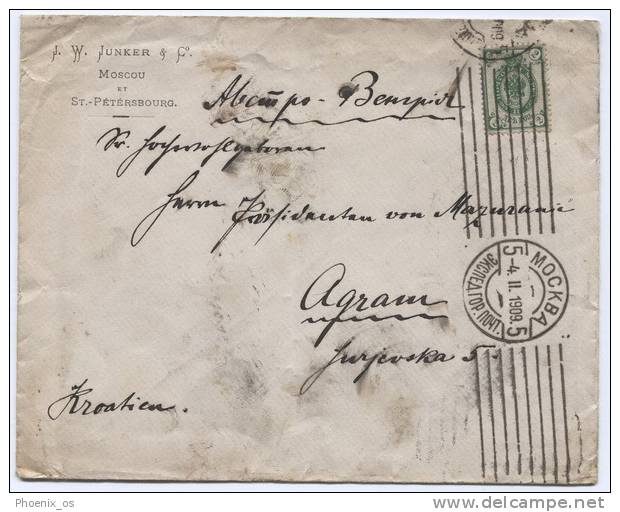 J. W. JUNKER & Cº.
MOSCOU
ET
ST.-PÉTERSBOURG.
Австро-Венгрія
Sr. Hochwohlgeboren
Herrn Präsidenten von Mažuranić
Agram
Jurjevska 5.
Kroatien.
МОСКВА
5-4.II.1909.5
ЭКСПЕД. ГОР. ПОЧТ.
Phoenix_os
delcampe.net